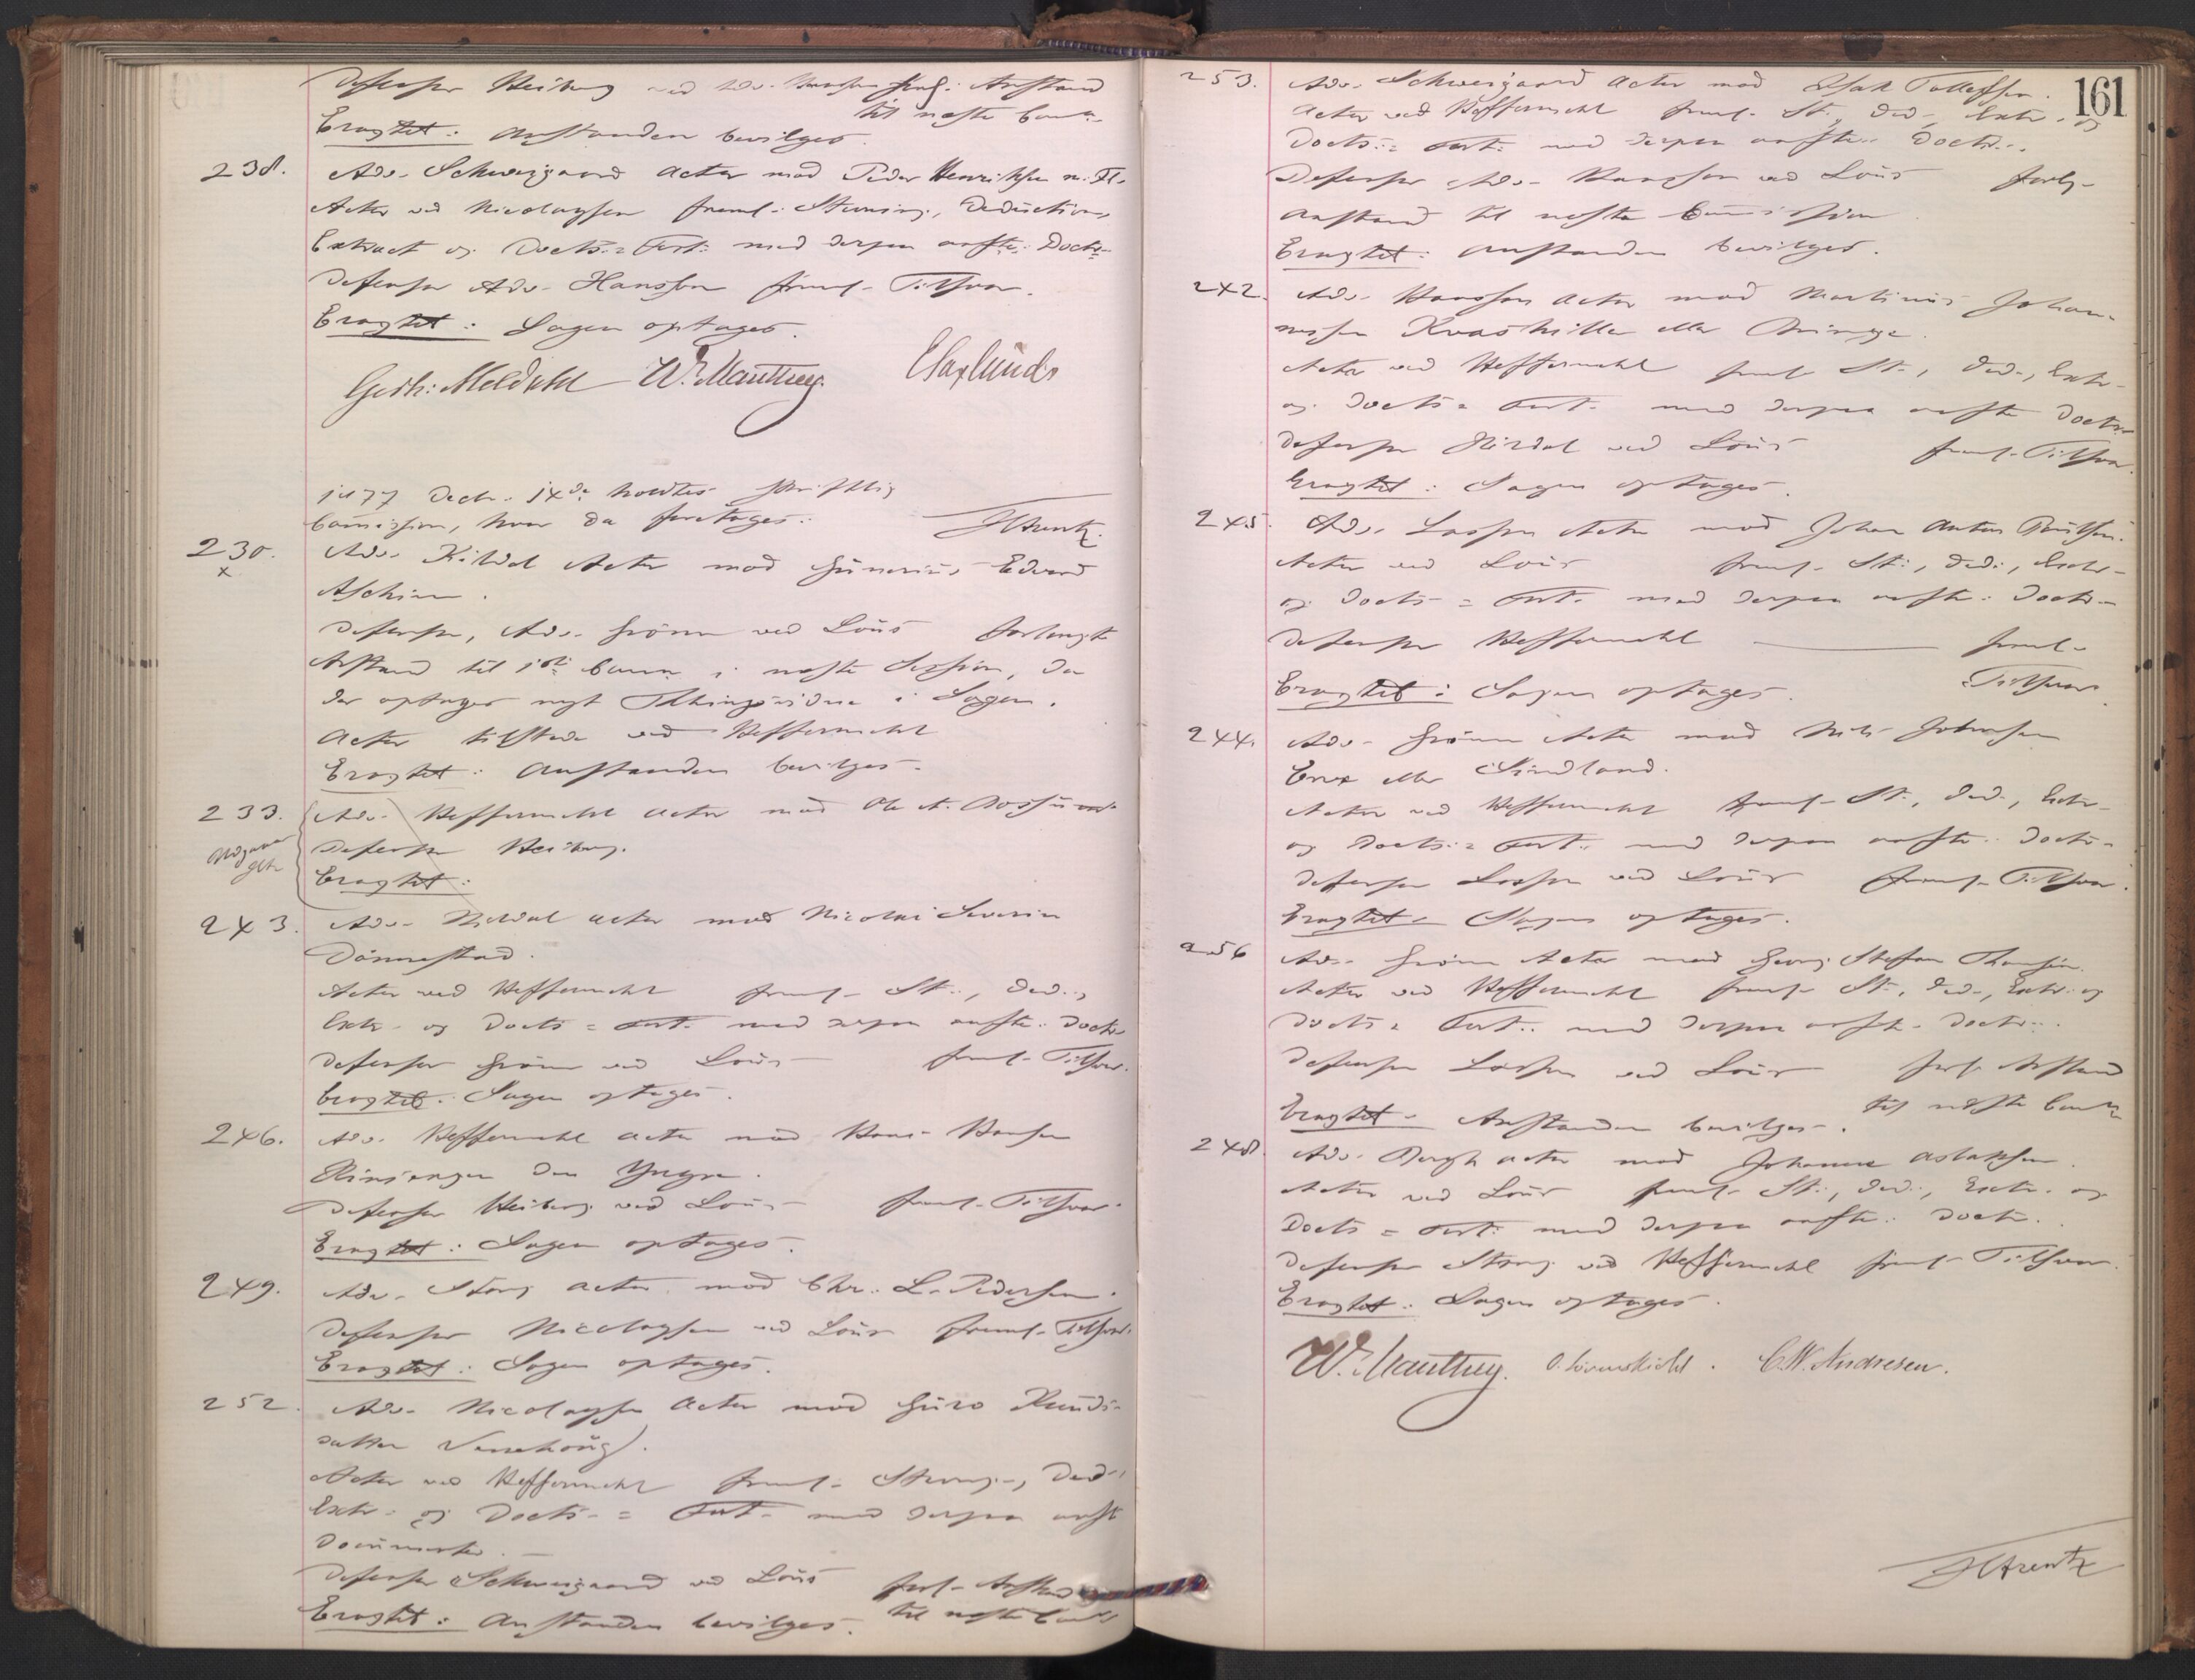 Defensor Heiberg ved Adv. Hansson forl: Anstand
til neste Comm.
Eragtet: Anstanden bevilges.
238. Adv. Schweigaard Actor mod Peder Henriksen m. Fl.
Actor ved Nicolaysen freml: Stevning, Deduction,
Extract og Docts.= Fort: med derpaa anførte Docter
Defensor Adv. Hansson freml. Tilsvar.
Eragtet: Sagen optages.
Gerh: Meldahl W. Manthey. E Saxlund
1877 Decbr. 14de holdtes skriftlig
Commission, hvor da foretoges:
H Arentz
230. Adv. Hildal Actor mod Gunerius Edvard
x
Aschim.
Defensor, Adv. Grönn ved Lous forlangte
Anstand til 1ste Comm. i neste Session, da
der optages nyt Thingsvidne i Sagen.
Actor tilstede ved Heffermehl
Eragtet: Anstanden bevilges.
233. Adv. Heffermehl Actor mod Ole A.
Defensor Heiberg.
Eragtet:
243. Adv. Hildal Actor mod Nicolai Severin
Dönnestad.
Actor ved Heffermehl freml. St., Ded.,
Extr. og Docts = Fort. med derpaa anførte Docter
Defensor Grönn ved Lous freml. Tilsvar.
Eragtet: Sagen optages.
246. Adv. Heffermehl Actor mod Hans Hansen
den Yngre.
Defensor Heiberg ved Lous freml. Tilsvar.
Eragtet: Sagen optages.
249. Adv. Stang Actor mod Chr. L. Pedersen.
Defensor Nicolaysen ved Lous freml. Tilsvar.
Eragtet: Sagen optages.
252. Adv. Nicolaysen Actor mod Guro Knuds-
datter
Actor ved Heffermehl freml. Stevng., Ded.,
Extr. og Docts. = Fort. med derpaa anfte
Documenter.
Defensor Schweigaard ved Lous forl. Anstand
til neste Comm
Eragtet: Anstanden bevilges.
161
253. Adv. Schweigaard Actor mod Isak Tollefsen.
Actor ved Heffermehl freml. St., Ded., Extr. og
Docts. = Fort. med derpaa anførte Docter.
Defensor Adv. Hansson ved Lous forlg.
Anstand til neste Commission
Eragtet: Anstanden bevilges.
242. Adv. Hansson Actor mod Martinius Johan-
nesen Kvashille eller
Actor ved Heffermehl freml. St., Ded., Extr.
og Docts = Fort. med derpaa anførte Docter
Defensor Hildal ved Lous freml. Tilsvar.
Eragtet: Sagen optages.
245. Adv. Lassen Actor mod Johan Anton
Actor ved Lous freml. St., Ded., Extr.
og Docts = Fort. med derpaa anfte. Docter
Defensor Heffermehl — freml.
Tilsvar.
Eragtet: Sagen optages.
244. Adv. Grönn Actor mod Nils Johnsen
eller Sindland.
Actor ved Heffermehl freml. St., Ded., Extr.
og Docts. = Fort. med derpaa anfte. Docter
Defensor Lassen ved Lous freml. Tilsvar.
Eragtet. Sagen optages.
256 Adv. Grönn Actor mod Georg Stefan Thomsen.
Actor ved Heffermehl freml. St., Ded., Extr. og
Docts = Fort. med derpaa anfte. Docter.
Defensor Lassen ved Lous forl. Anstand
til neste Comm
Eragtet. Anstanden bevilges.
248. Adv. Bergh Actor mod Johannes Aslaksen.
Actor ved Lous freml. St., Ded., Extr. og
Docts = Fort: med derpaa anfte. Docter.
Defensor Stang ved Heffermehl freml. Tilsvar.
Eragtet: Sagen optages.
W. Manthey. O. Lövenskiold. C.W. Andresen.
H Arentz